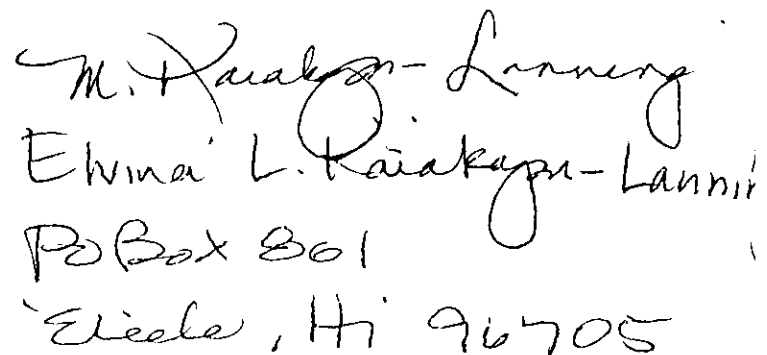 M. Kaiakapu-Lanning
Elvina L. Kaiakapu-Lannin
PO Box 861
'Eleele, Hi 96705